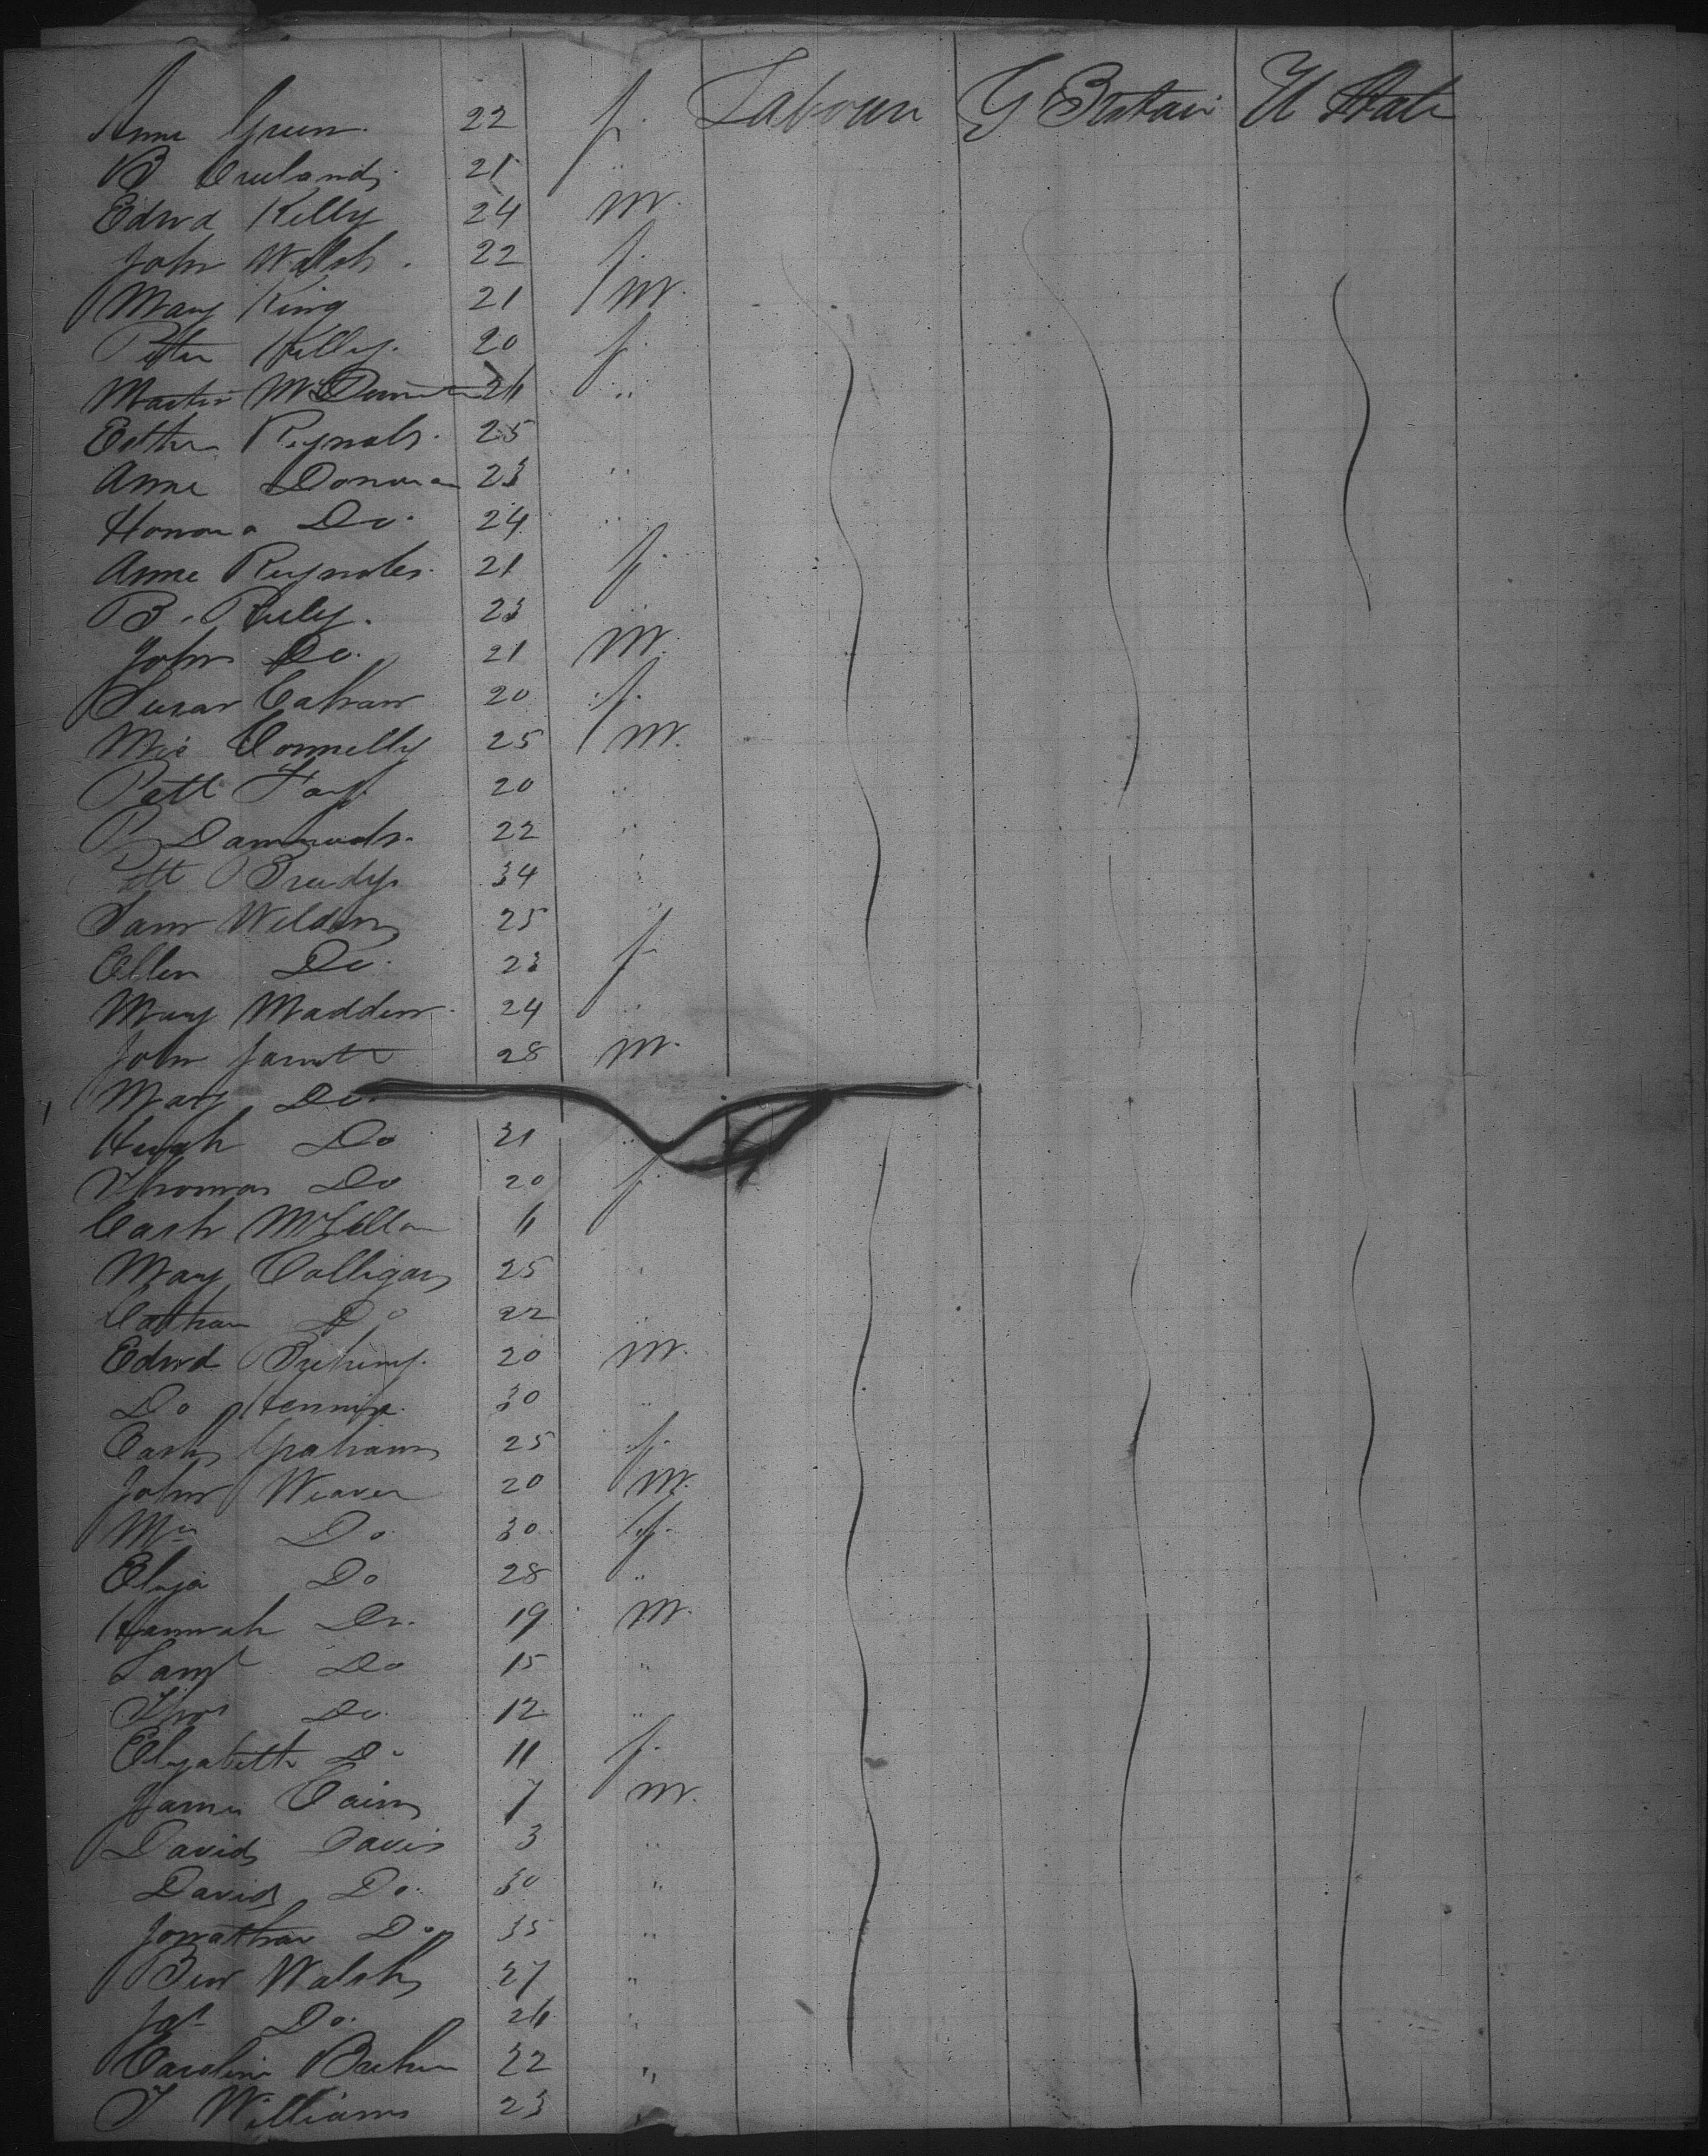 Anne Green. 22 f. Labourer G Britain U State
B 21 "
Edwd Kelly 24 m.
John Walsh. 22 f.
Mary King 21 m.
Peter Kelly. 20 f.
Martin "
Esther Reynols. 25
Anne Donovan 23 "
Honora Do. 24 "
Anne Reynoles. 21 f.
B. Riely. 23 "
John Do. 21 m.
Susan Cahan 20 f.
Mic Connelly 25 m.
Patt Foy. 20 "
P 22 "
Patt Brudy. 34 "
Sam Weldon 25 "
Ellen Do. 23 f
Mary Madden. 24 "
John 28 m.
Mary Do.
Hugh Do 21 "
Thomas Do 20 f.
Cath 11
Mary Colligan 25 "
Cathan Do 22 "
Edwd 20 m.
Do 30 "
Cath Graham 25 f.
John Weaver 20 m.
Mrs Do 30 f.
Eliza Do 28 "
Hannah Do. 19 m.
Saml Do 15 "
Thos Do. 12 "
Elizabeth Do 11 f.
James Cain 7 m.
David Davis 3 "
David Do. 30 "
Jonathan Do 35 "
Ben Walsh 27 "
Jas Do. 26 "
Caroline 22 "
T Williams 23